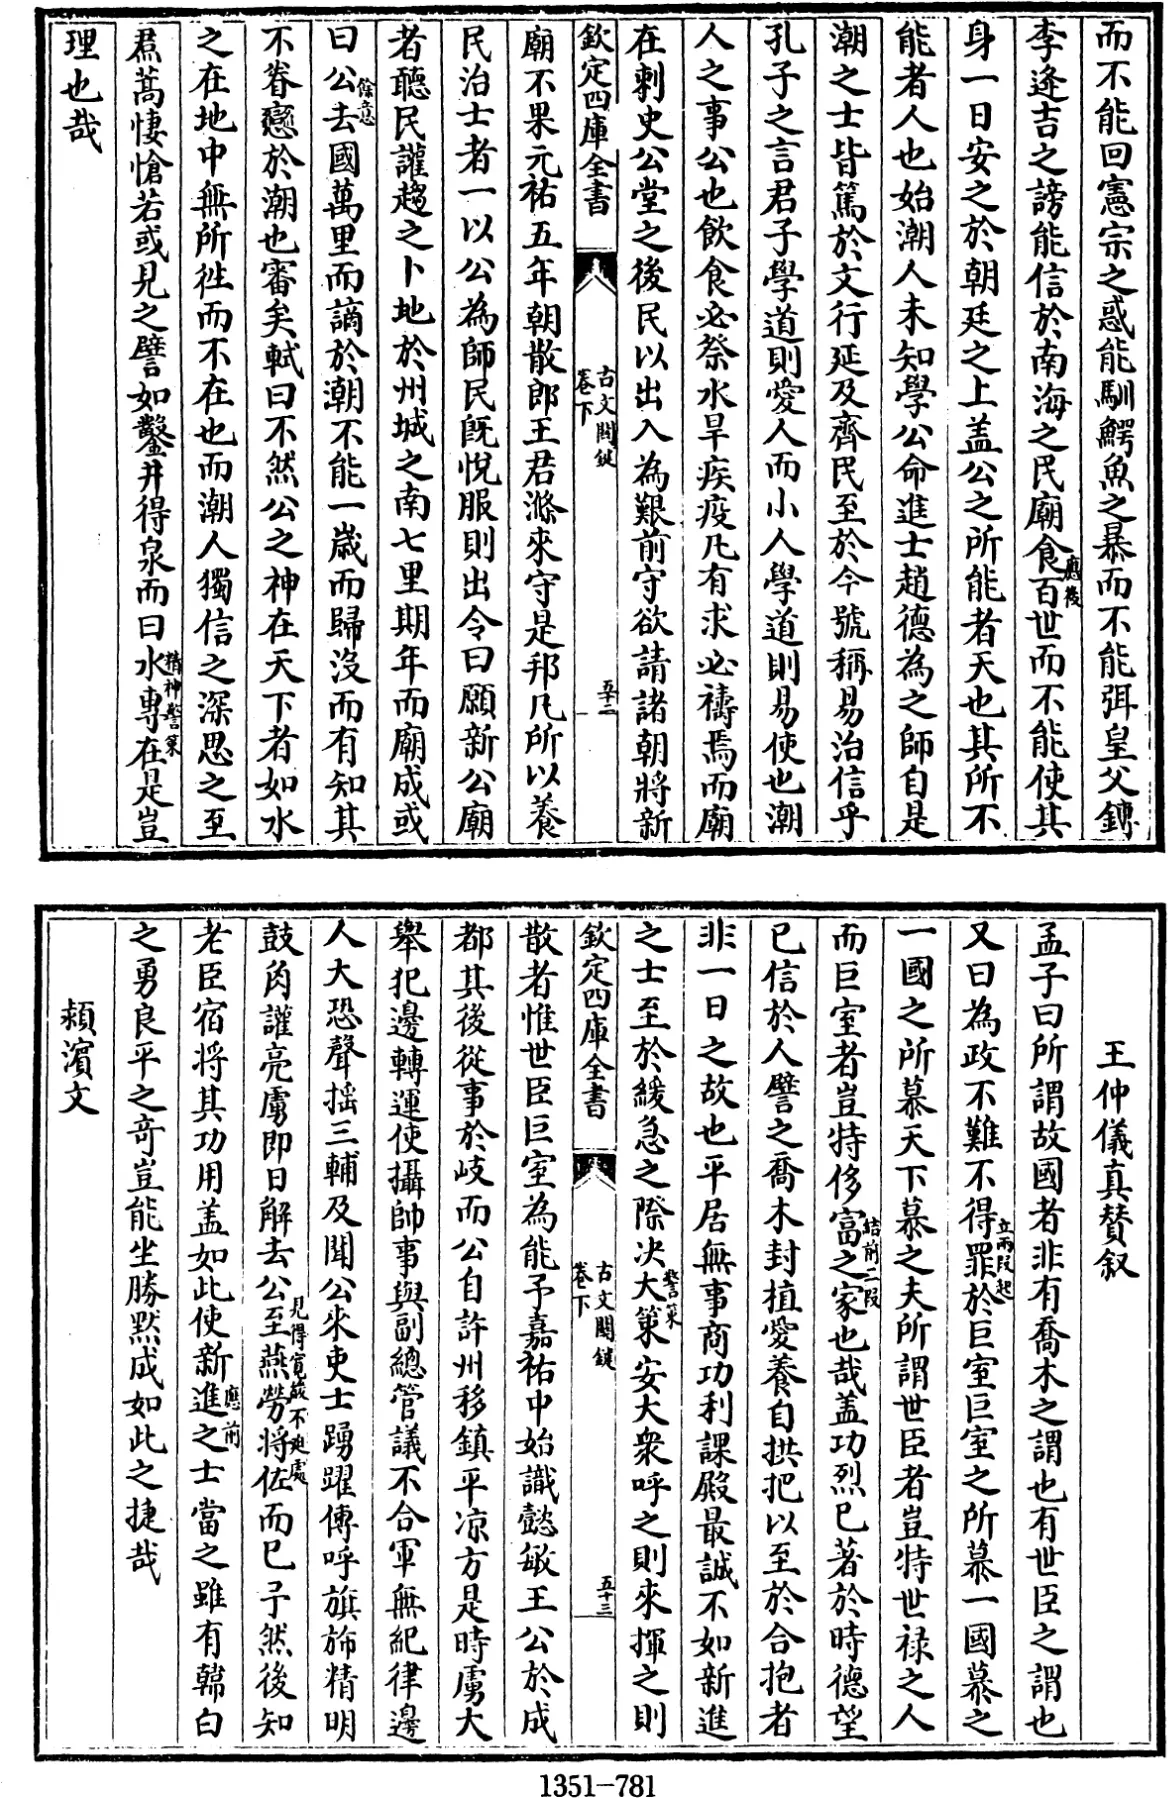 而不能回憲宗之惑能馴鰐魚之暴而不能弭皇父鎛
李逢吉之謗能信於南海之民廟食百世而不能使其
應後
身一日安之於朝廷之上盖公之所能者天也其所不
能者人也始潮人未知學公命進士趙德為之師自是
潮之士皆篤於文行延及齊民至於今號稱易治信乎
孔子之言君子學道則愛人而小人學道則易使也潮
人之事公也飲食必祭水旱疾疫凡有求必禱焉而廟
在刺史公堂之後民以出入為艱前守欲請諸朝將新
欽定四庫全書
古文關鍵
卷下
五十二
廟不果元祐五年朝散郎王君滌來守是邦凡所以養
民治士者一以公為師民既悅服則出令曰願新公廟
者聽民讙趨之卜地於州城之南七里期年而廟成或
曰公去國萬里而謫於潮不能一歲而歸沒而有知其
餘意
不眷戀於潮也審矣軾曰不然公之神在天下者如水
之在地中無所徃而不在也而潮人獨信之深思之至
焄蒿悽愴若或見之譬如鑿井得泉而曰水專在是豈
精神警策
理也哉
王仲儀真賛叙
孟子曰所謂故國者非有喬木之謂也有世臣之謂也
又曰為政不難不得罪於巨室巨室之所慕一國慕之
立兩段起
一國之所慕天下慕之夫所謂世臣者豈特世禄之人
而巨室者豈特侈富之家也哉盖功烈已著於時德望
結前二段
已信於人譬之喬木封植愛養自拱把以至於合抱者
非一日之故也平居無事商功利課殿最誠不如新進
之士至於緩急之際决大䇿安大衆呼之則來揮之則
警策
欽定四庫全書
古文關鍵
卷下
五十三
散者惟世臣巨室為能予嘉祐中始識懿敏王公於成
都其後從事於岐而公自許州移鎮平凉方是時虜大
舉犯邊轉運使攝帥事與副總管議不合軍無紀律邊
人大恐聲揺三輔及聞公來吏士踴躍傳呼旗旆精明
鼓角讙亮虜即日解去公至燕勞將佐而已予然後知
見得寛緩不迫處
老臣宿將其功用盖如此使新進之士當之雖有韓白
應前
之勇良平之奇豈能坐勝黙成如此之捷哉
頴濱文
1351-781